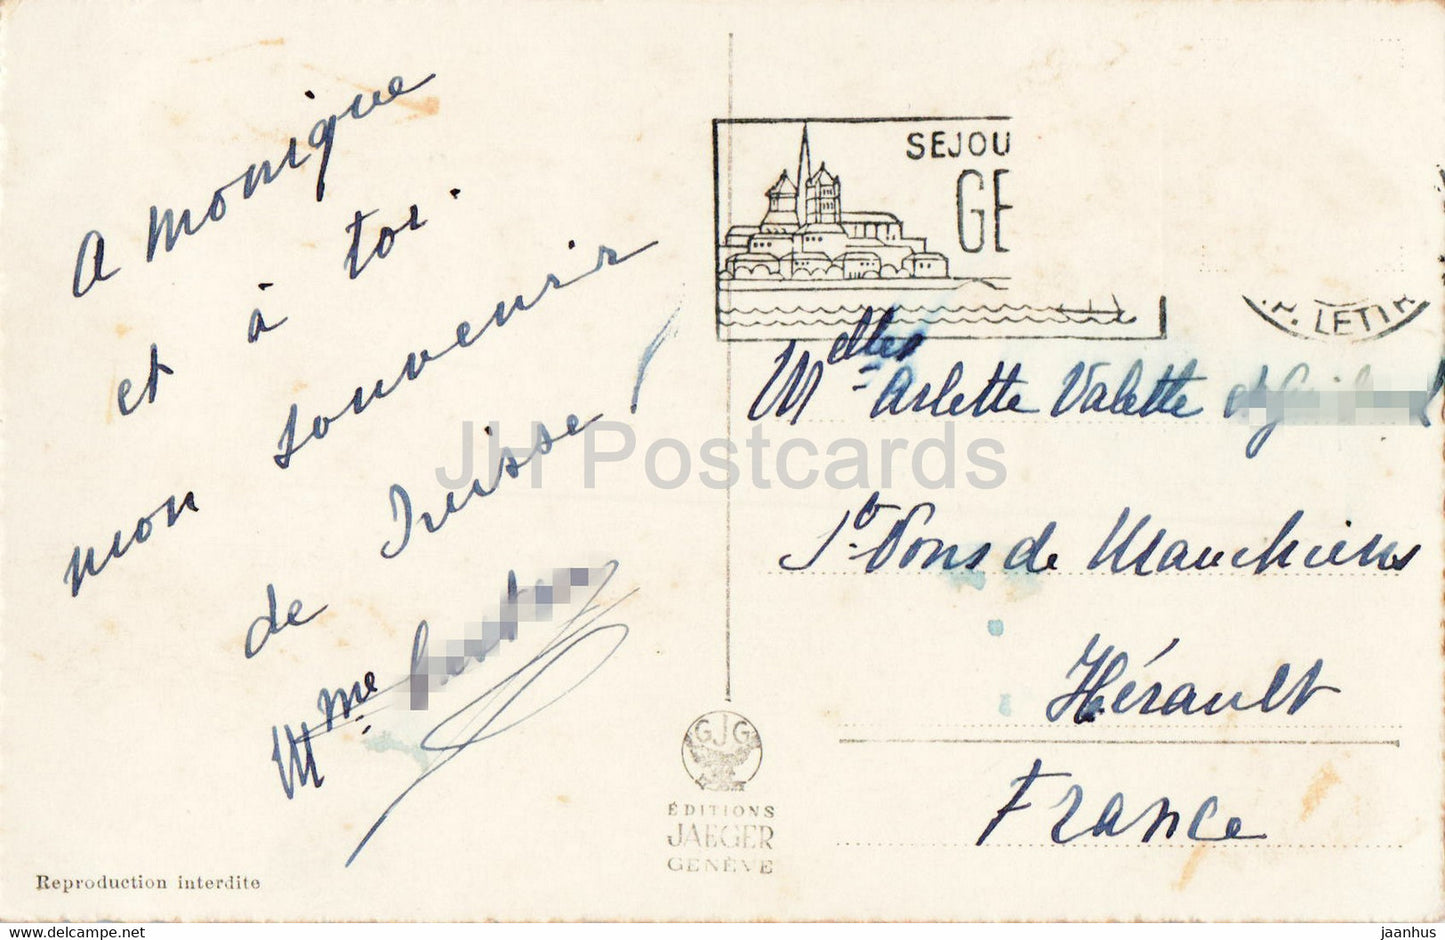 A Monique
et à toi.
mon souvenir
de Suisse !
Mme
SEJOU
GE
LETTR
Melles Arlette Valette et
St Pons de Mauchiens
Hérault
France
GJG
ÉDITIONS
JAEGER
GENÈVE
Reproduction interdite
JH Postcards
jaanhus